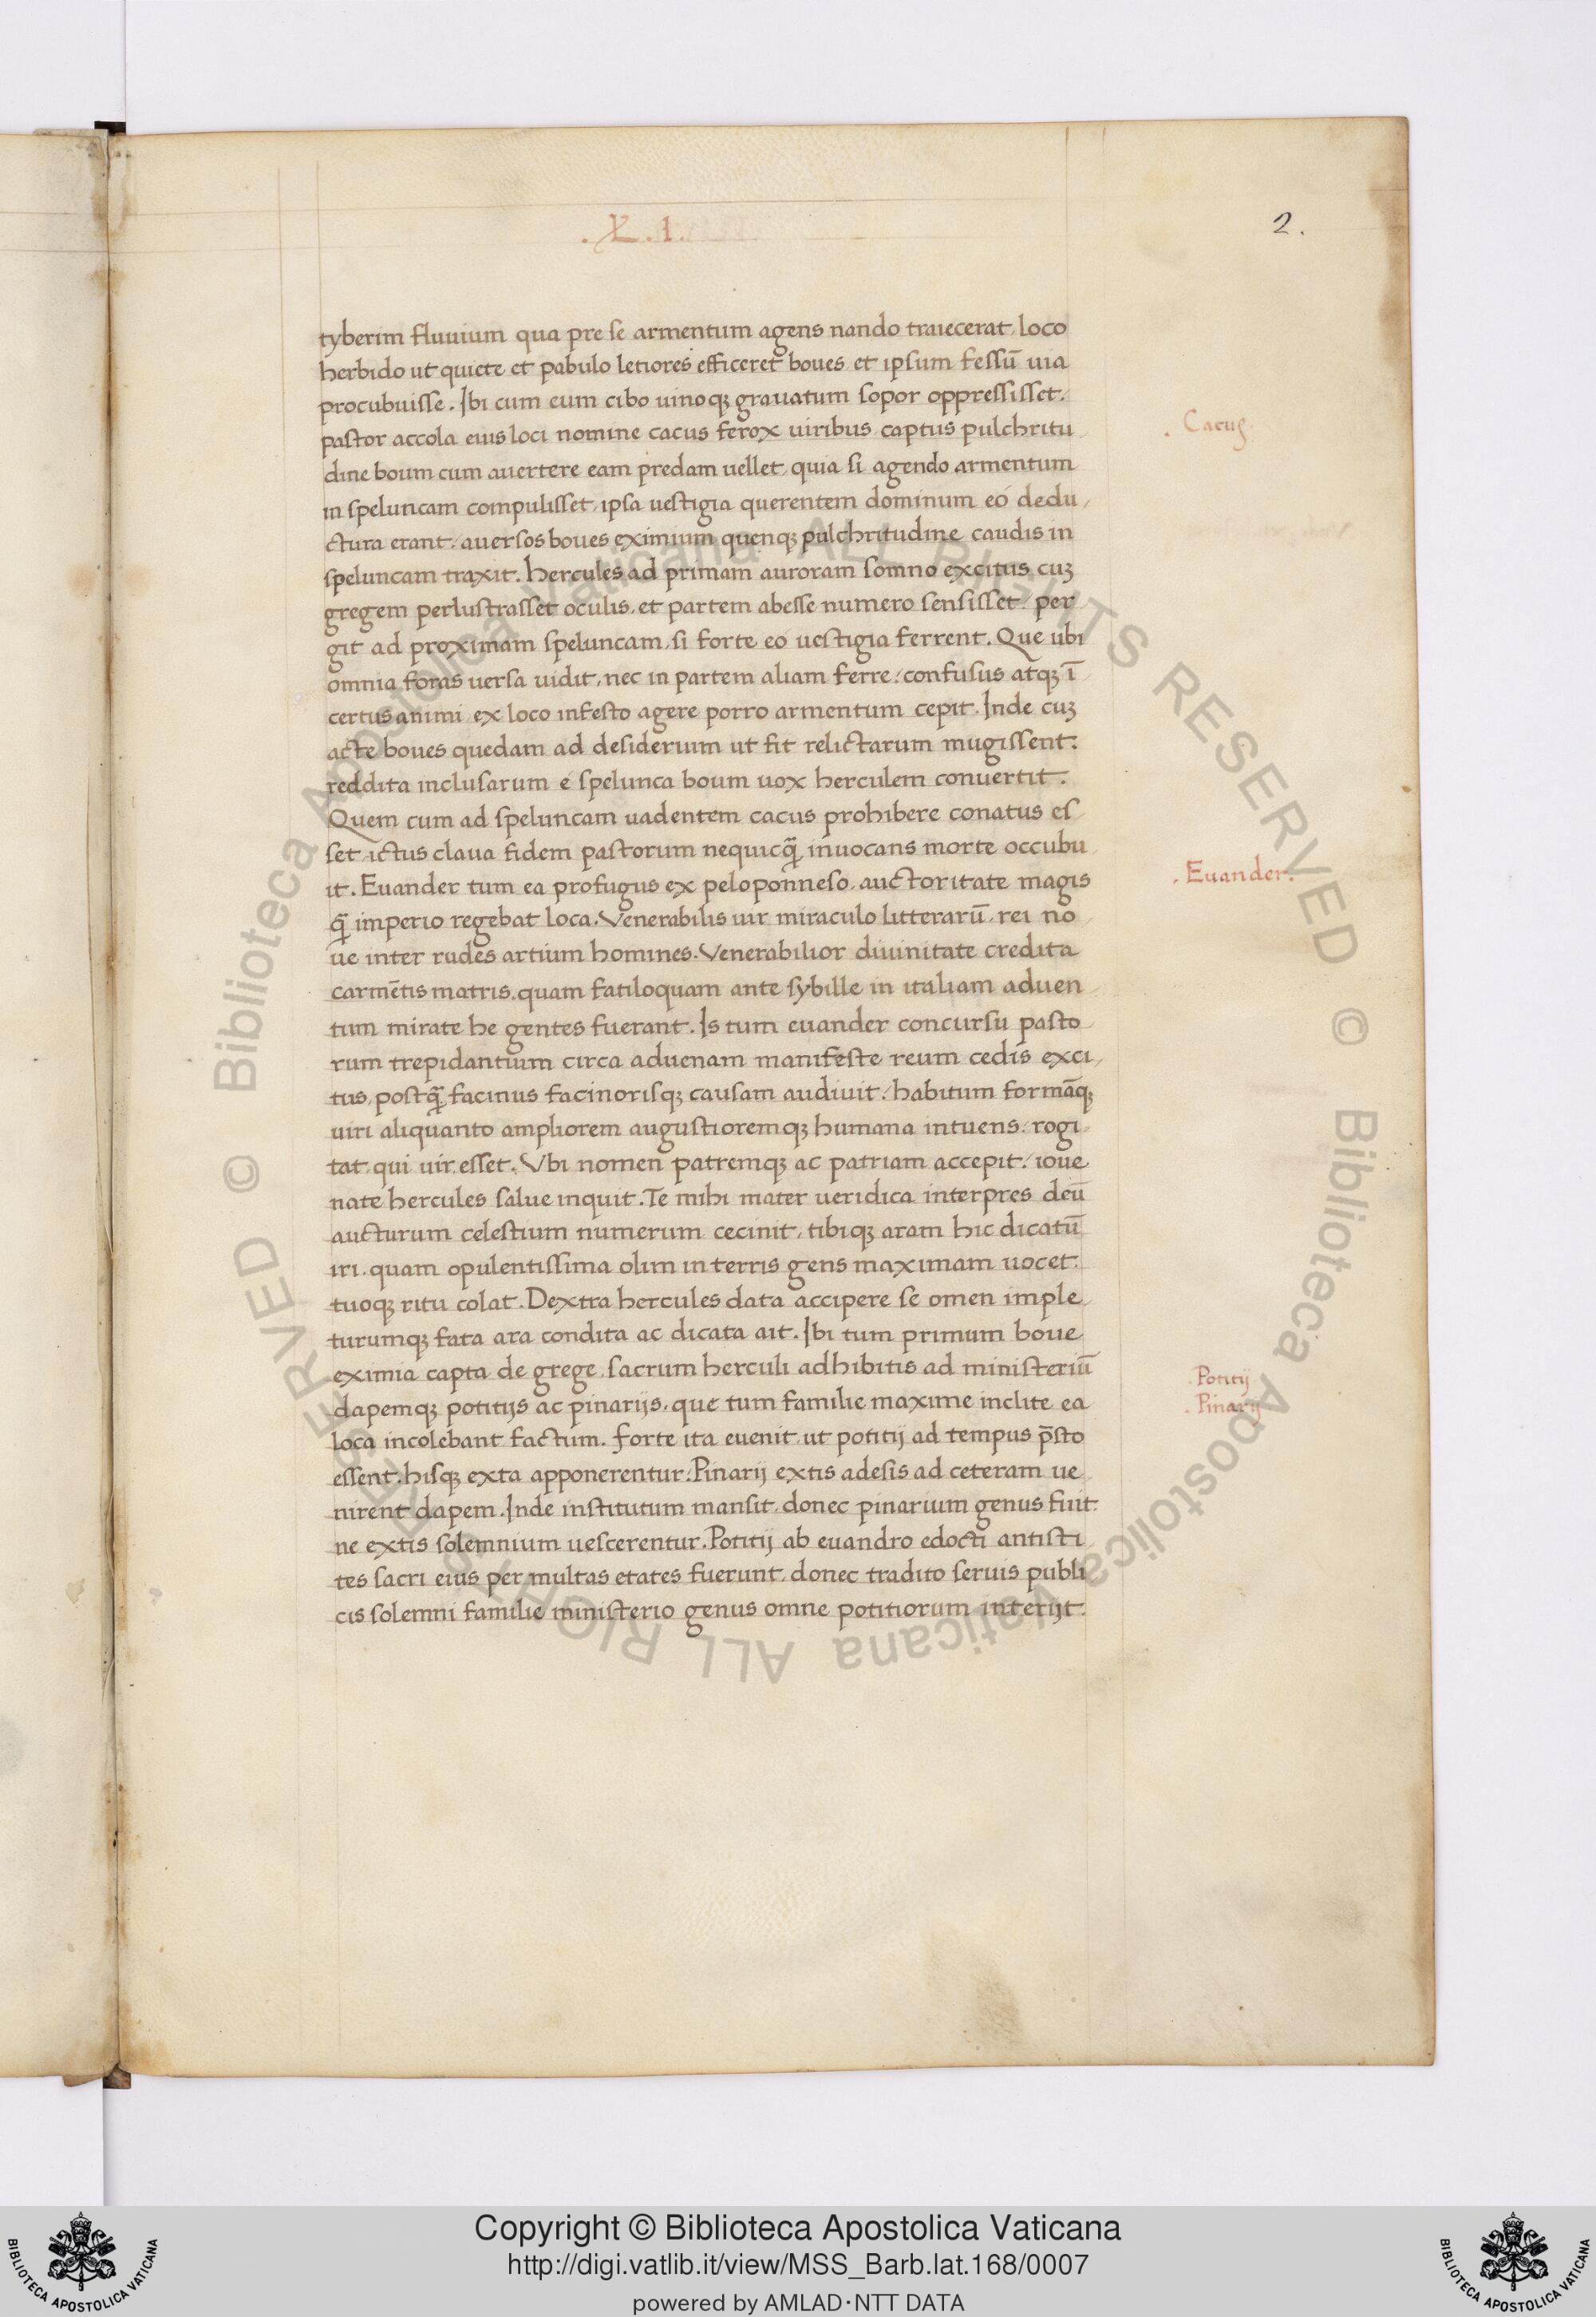 .L.I.
2.
tyberim fluuium qua pre se armentum agens nando traiecerat, loco
herbido ut quiete et pabulo letiores efficeret boues, et ipsum fessū uia
procubuisse. Ibi cum eum cibo uinoqꝫ grauatum sopor oppressisset.
pastor accola eius loci nomine cacus ferox uiribus captus pulchritu
dine boum cum auertere eam predam uellet, quia si agendo armentum
in speluncam compulisset, ipsa uestigia querentem dominum eo dedu
ctura erant, auersos boues eximium quenqꝫ pulchritudine caudis in
speluncam traxit. Hercules ad primam auroram somno excitus cuꝫ
gregem perlustrasset oculis, et partem abesse numero sensisset, per
git ad proximam speluncam, si forte eo uestigia ferrent. Que ubi
omnia foras uersa uidit, nec in partem aliam ferre, confusus atqꝫ ī
certus animi ex loco infesto agere porro armentum cepit. Inde cuꝫ
acte boues quedam ad desiderium ut fit relictarum mugissent.
reddita inclusarum e spelunca boum uox herculem conuertit.
Quem cum ad speluncam uadentem cacus prohibere conatus es
set, ictus claua fidem pastorum nequicꝗ̄ inuocans morte occubu
it. Euander tum ea profugus ex peloponneso, auctoritate magis
ꝗ̄ imperio regebat loca. Venerabilis uir miraculo litterarū, rei no
ue inter rudes artium homines. Venerabilior diuinitate credita
carmētis matris, quam fatiloquam ante sybille in italiam aduen
tum mirate he gentes fuerant. Is tum euander concursu pasto
rum trepidantium circa aduenam manifeste reum cedis exci
tus, postꝗ̄ facinus facinorisqꝫ causam audiuit, habitum formāqꝫ
uiri aliquanto ampliorem augustioremqꝫ humana intuens, rogi
tat qui uir esset. Vbi nomen patremqꝫ ac patriam accepit, ioue
nate hercules salue inquit. Te mihi mater ueridica interpres deū
aucturum celestium numerum cecinit, tibiqꝫ aram hic dicatū
iri, quam opulentissima olim in terris gens maximam uocet.
tuoqꝫ ritu colat. Dextra hercules data accipere se omen imple
turumqꝫ fata ara condita ac dicata ait. Ibi tum primum boue
eximia capta de grege, sacrum herculi adhibitis ad ministeriū
dapemqꝫ potitijs ac pinarijs, que tum familie maxime inclite ea
loca incolebant factum. Forte ita euenit ut potitij ad tempus p̄sto
essent, hisqꝫ exta apponerentur. Pinarij extis adesis ad ceteram ue
nirent dapem. Inde institutum mansit, donec pinarium genus fuit
ne extis solemnium uescerentur. Potitij ab euandro edocti antisti
tes sacri eius per multas etates fuerunt, donec tradito seruis publi
cis solemni familie ministerio genus omne potitiorum interijt.
. Cacus.
. Euander.
. Potitij
. Pinarij
© Biblioteca Apostolica Vaticana ALL RIGHTS RESERVED © Biblioteca Apostolica Vaticana ALL RIGHTS RESERVED
Copyright © Biblioteca Apostolica Vaticana
http://digi.vatlib.it/view/MSS_Barb.lat.168/0007
powered by AMLAD·NTT DATA
BIBLIOTECA APOSTOLICA VATICANA
BIBLIOTECA APOSTOLICA VATICANA